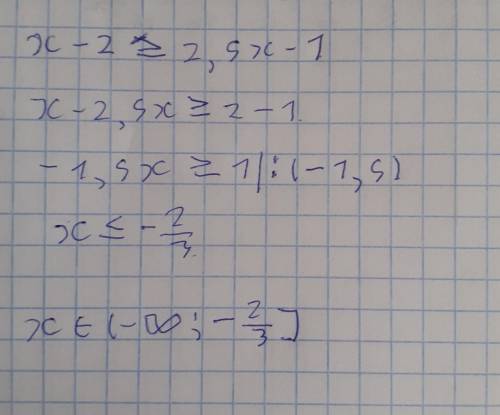 x - 2 ≥ 2,5x - 1
x - 2,5x ≥ 2 - 1
-1,5x ≥ 1 | : (-1,5)
x ≤ -2/3
x ∈ (-∞; -2/3]